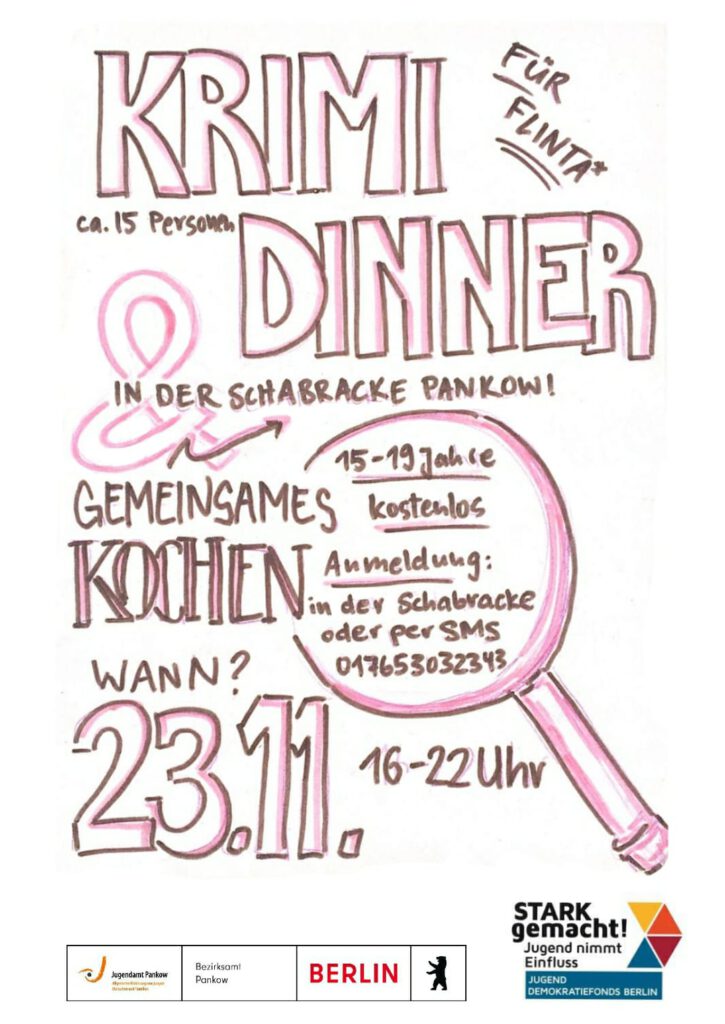 KRIMI
FÜR
FLINTA*
ca. 15 Personen
DINNER
&
IN DER SCHABRACKE PANKOW!
15-19 Jahre
kostenlos
GEMEINSAMES
KOCHEN
Anmeldung:
in der Schabracke
oder per SMS
017653032343
WANN?
23.11.
16-22 Uhr
STARK
gemacht!
Jugend nimmt
Einfluss
JUGEND
DEMOKRATIEFONDS BERLIN
Jugendamt Pankow
Bezirksamt
Pankow
BERLIN